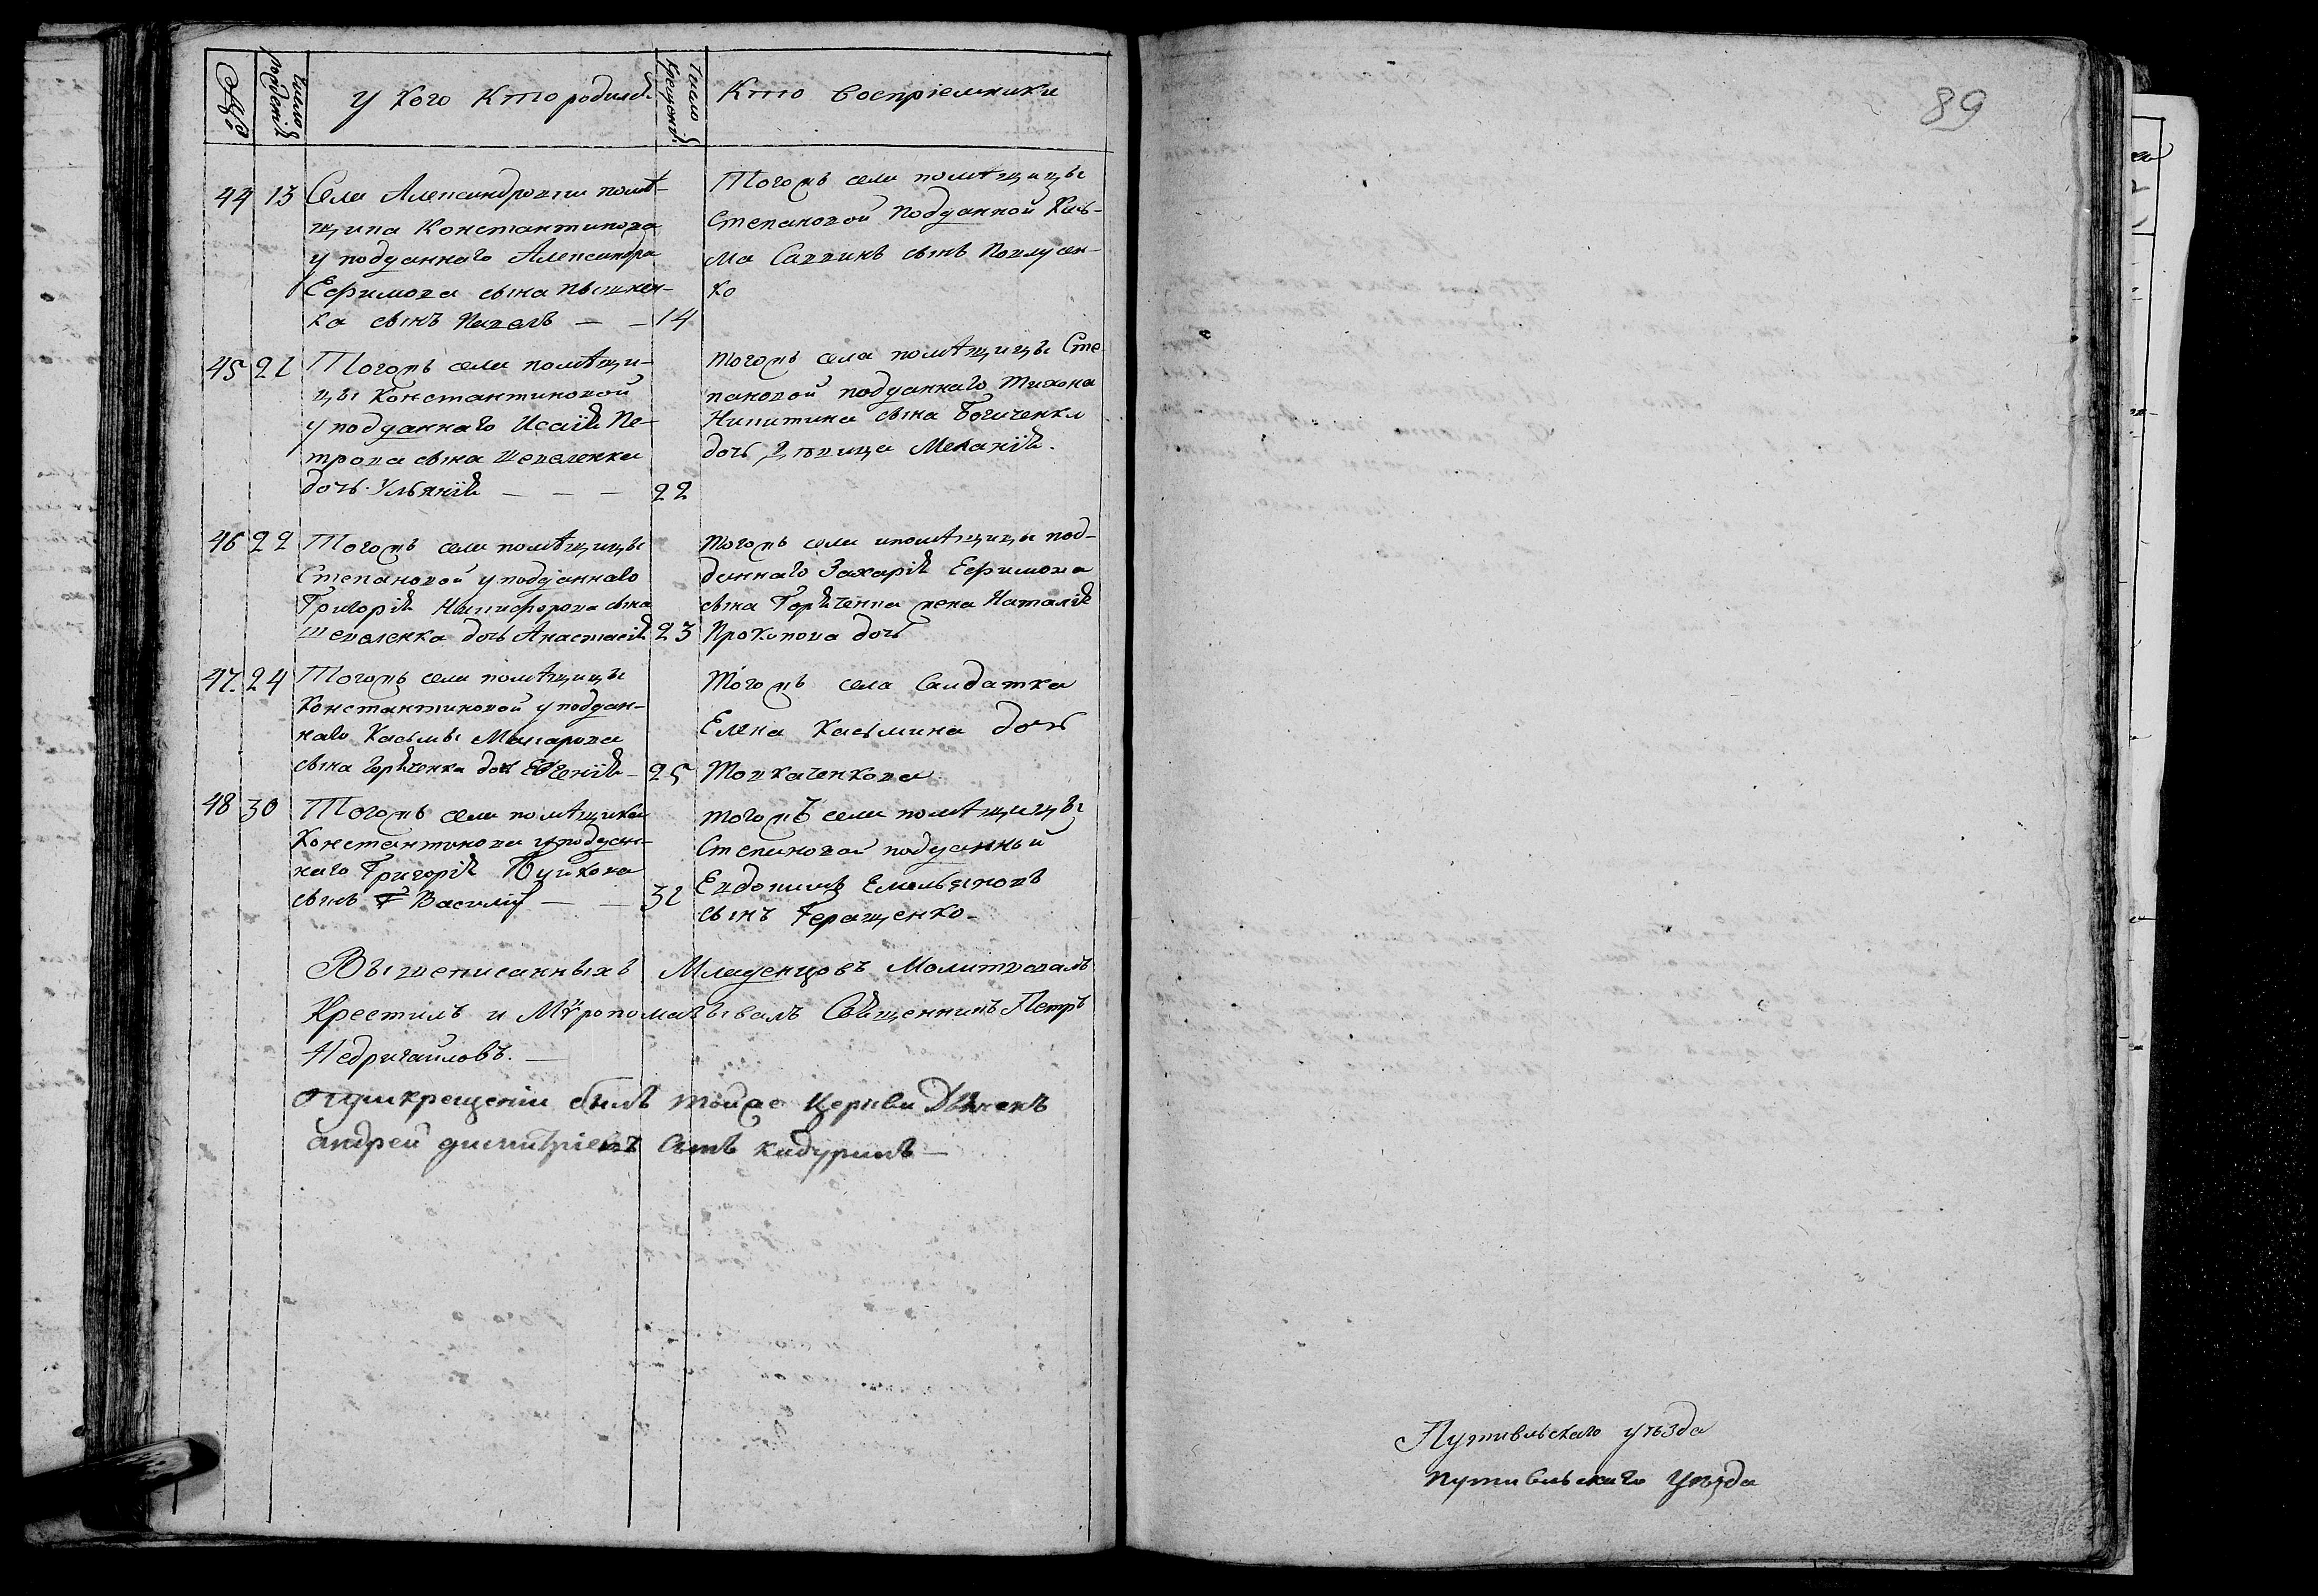 №
Число рожденій
У кого кто родился
Число крещеній
Кто восприемники
44 13 Села Александровки помѣ-
щика Константинова
у подданнаго Александра
Ефимова сына
ка сынъ Павелъ — — 14
Тогожъ села помѣщицы
Степановой подданной Кась-
ма Саввинъ сынъ
ко
45 21 Тогожъ села помѣщи-
цы Константиновой
у подданнаго Исаія Пе-
трова сына Шевеленка
дочь Ульянія — — — 22
Тогожъ села помѣщицы Сте-
пановой подданнаго Тихона
Никитина сына
дочь дѣвица Меланія.
46 22 Тогожъ села помѣщицы
Степановой у подданнаго
Григорія Никифорова сына
Шевеленка дочь Анастасія 23
Тогожъ села помѣщицы под-
даннаго Захарія Ефимова
сына Горяченка жена Наталія
Прокопова дочь
47. 24 Тогожъ села помѣщицы
Константиновой у поддан-
наго Касьмы Макарова
сына Горяченка дочь Евгенія — 25
Тогожъ села Салдатка
Елена Касьмина дочь
Товкаченкова
48 30 Тогожъ села помѣщика
Константинова у поддан-
наго Григорія
сынъ Василій — — 31
тогожъ села помѣщицы
Степановой подданный
Евдокимъ Емельяновъ
сынъ Геращенко.
Вышеписанныхъ Младенцовъ Молитвовалъ
Крестилъ и Мѵропомазывалъ Священникъ Петръ
Недригайловъ. —
При крещеніи былъ тойже Церкви Дьячекъ
андрей димитріевъ сынъ кадуринъ —
89
Путивльскаго уѣзда
Путивльскаго Уѣзда